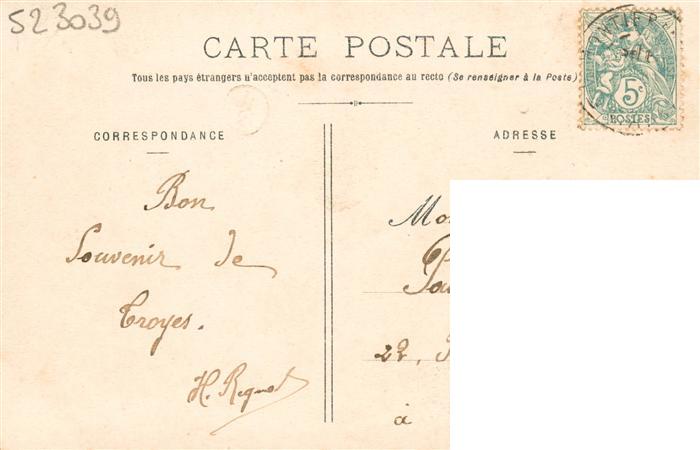 523039
CARTE POSTALE
Tous les pays étrangers n'acceptent pas la correspondance au recto (Se renseigner à la Poste)
CORRESPONDANCE
Bon
Souvenir de
Troyes.
ADRESSE
22,
à
5c
POSTES